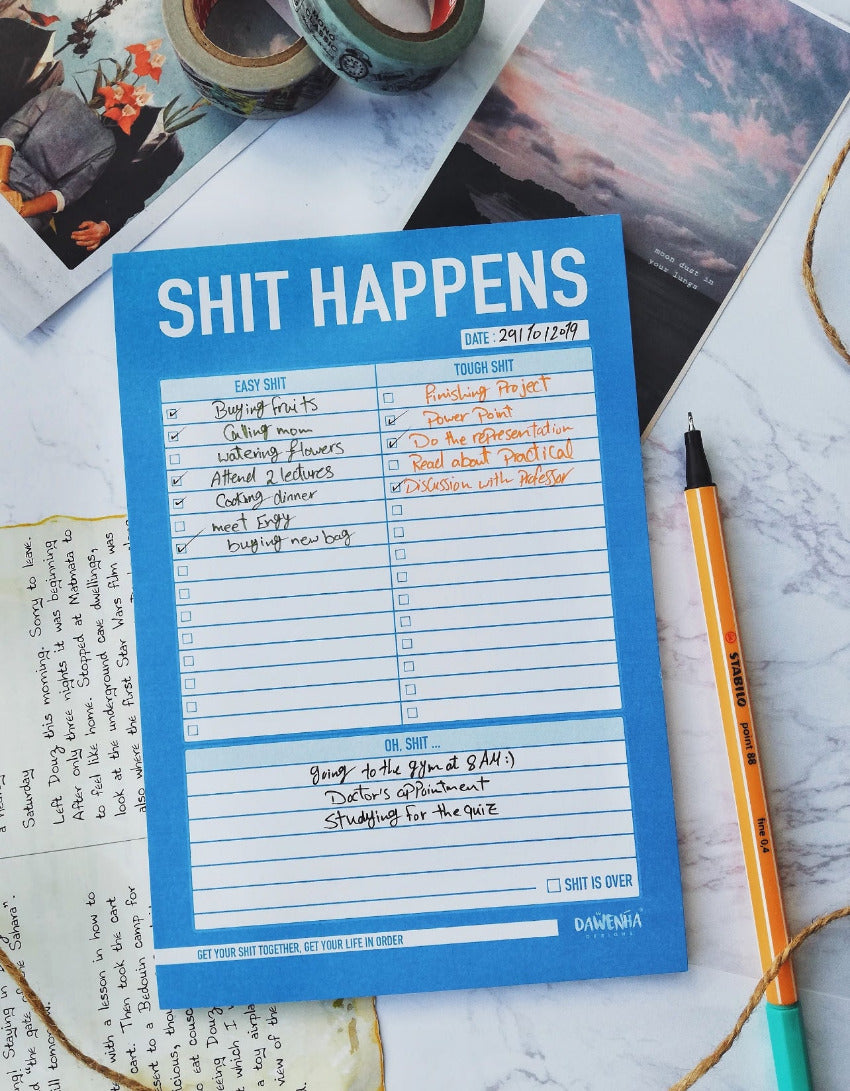 moon dust in
your lungs
SHIT HAPPENS
DATE : 29/10/2019
EASY SHIT
Buying fruits
Calling mom
watering flowers
Attend 2 lectures
Cooking dinner
meet Engy
buying new bag
TOUGH SHIT
Finishing Project
Power Point
Do the representation
Read about Practical
Discussion with Professor
OH, SHIT ...
going to the gym at 8 AM :)
Doctor's appointment
Studying for the quiz
SHIT IS OVER
GET YOUR SHIT TOGETHER, GET YOUR LIFE IN ORDER
DAWENHA
DESIGNS
STABILO
point 88
fine 0,4
Saturday
Left Douz this morning. Sorry to leave.
After only three nights it was beginning
to feel like home. Stopped at Matmata to
look at the underground cave dwellings,
also where the first Star Wars film was
Staying in
"the gate of the Sahara".
with a lesson in how to
cart. Then took the cart
to a Bedouin camp for